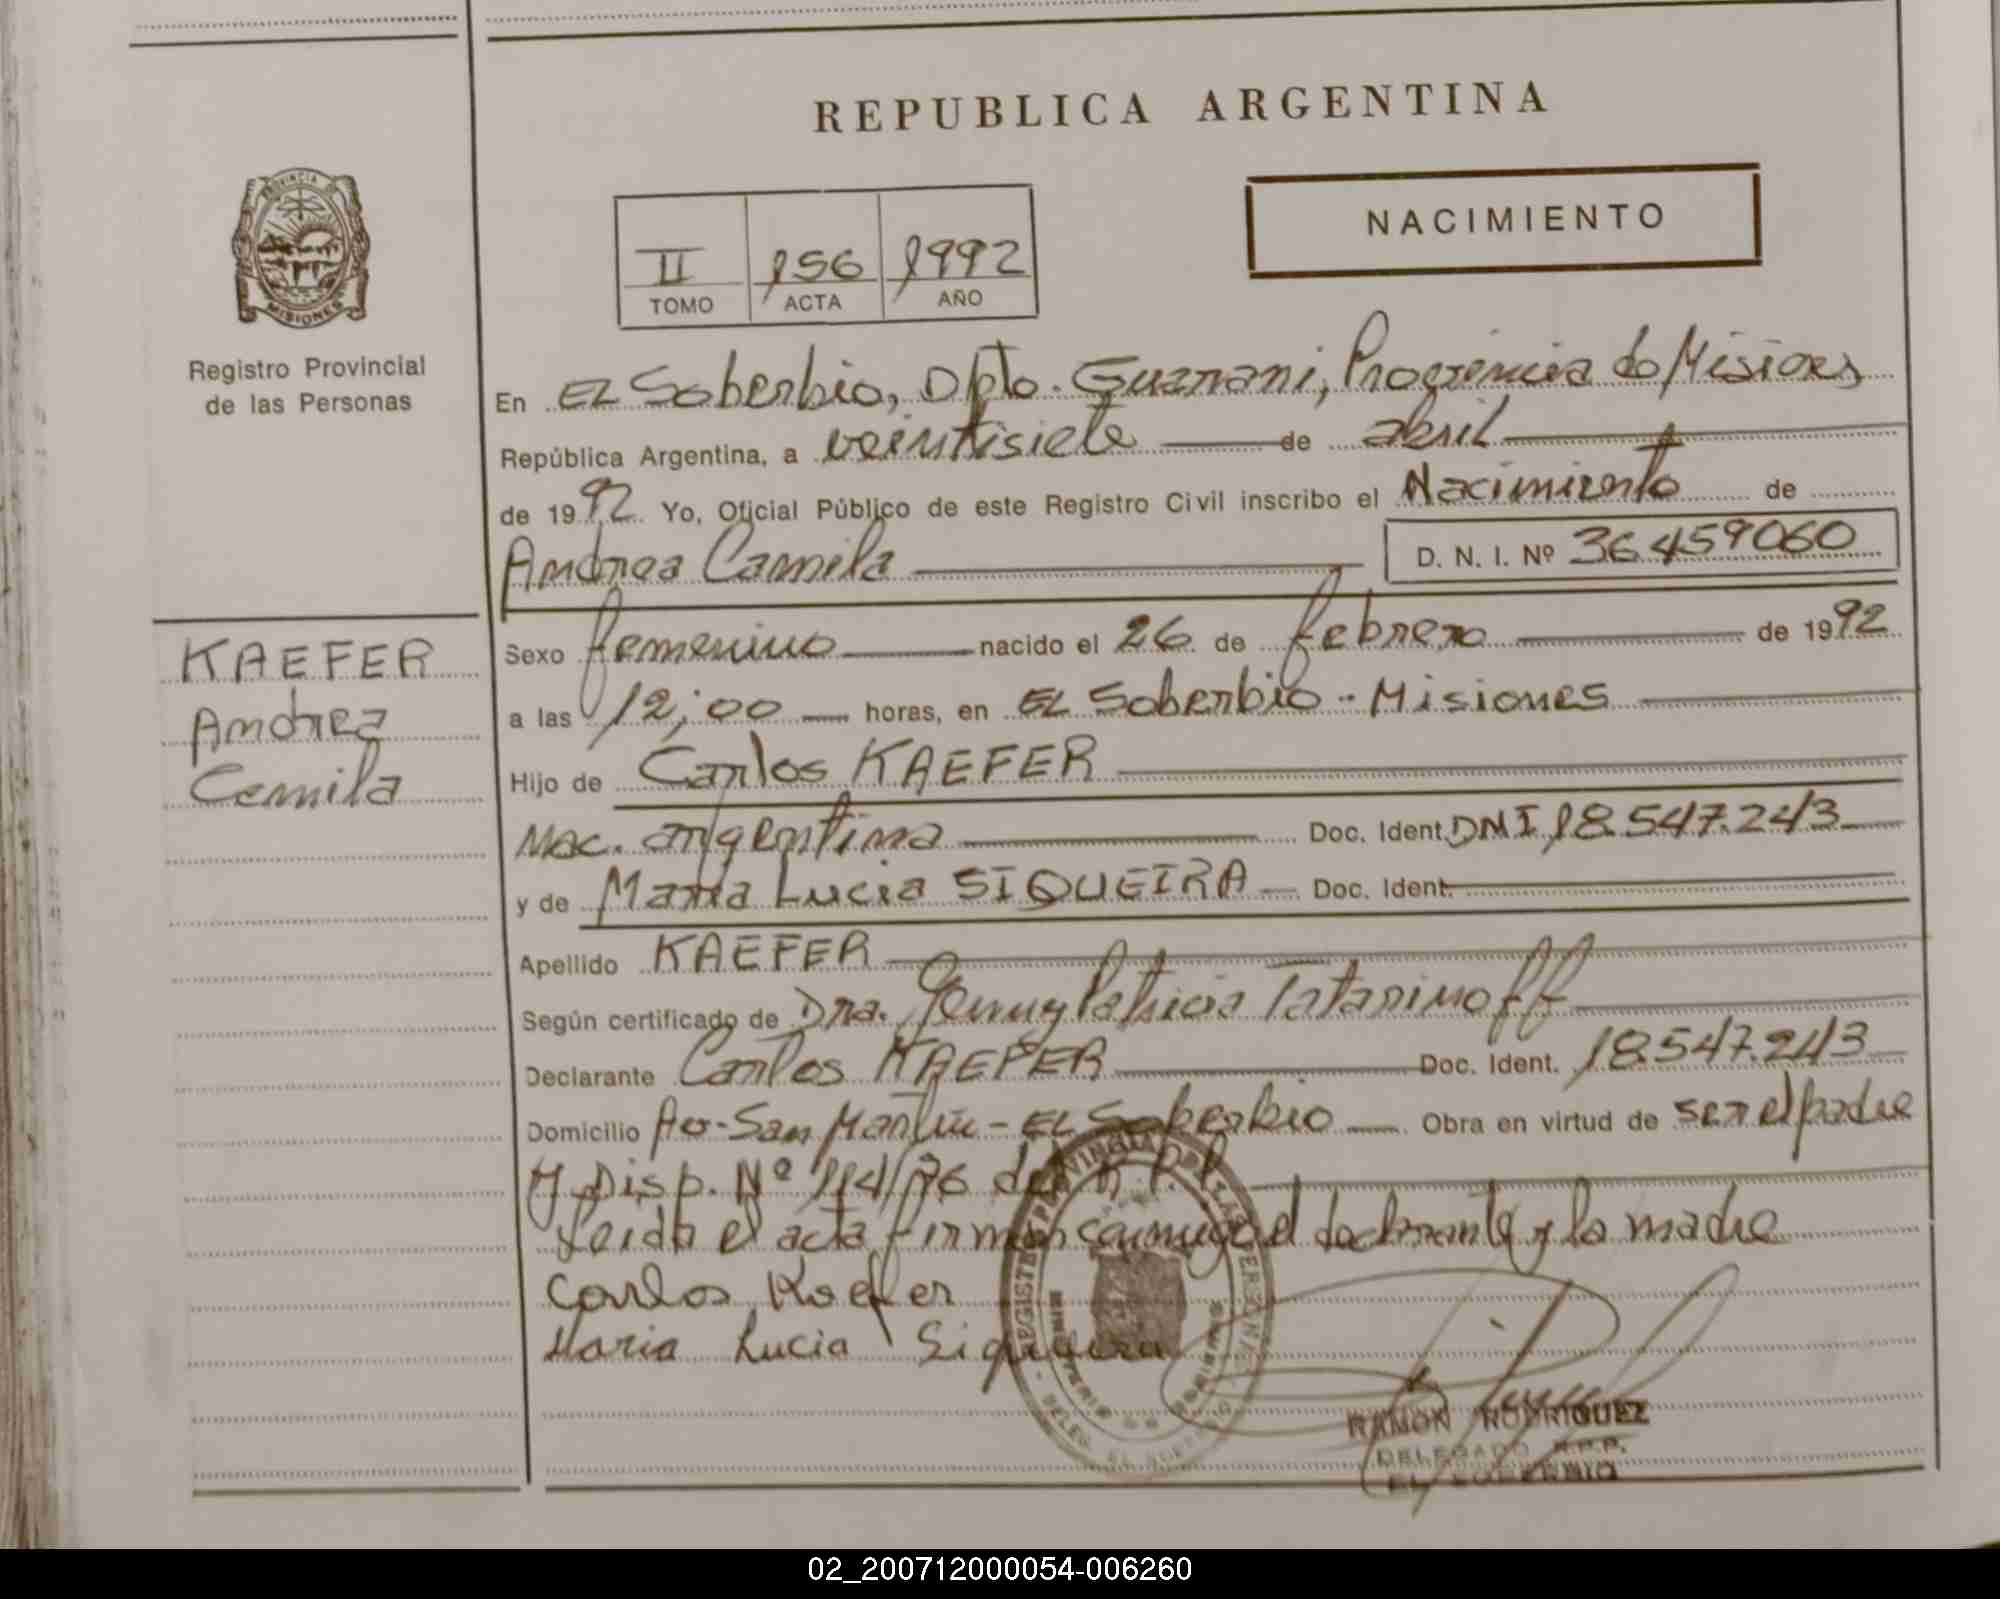 REPUBLICA ARGENTINA
NACIMIENTO
II 156 1992
TOMO ACTA AÑO
PROVINCIA DE
MISIONES
Registro Provincial
de las Personas
En EL Soberbio, Dpto. Guarani, Provincia de Misiones
República Argentina, a veintisiete de abril
de 1992 Yo, Oficial Público de este Registro Civil inscribo el Nacimiento de
Andrea Camila D. N. I. Nº 36.459060
KAEFER
Andrea
Camila
Sexo femenino nacido el 26 de febrero de 1992
a las 12:00 horas, en EL Soberbio - Misiones
Hijo de Carlos KAEFER
Nac. argentina Doc. Ident. DNI 18.547.243
y de Maria Lucia SIQUEIRA Doc. Ident.
Apellido KAEFER
Según certificado de Dra. Jenny Patricia Tatarinoff
Declarante Carlos KAEFER Doc. Ident. 18.547.243
Domicilio Av. San Martin - EL Soberbio Obra en virtud de ser el padre
y Disp. Nº 114/76 del R.P.P.
Leida el acta firman conmigo el declarante y la madre
Carlos Kaefer
Maria Lucia Siqueira
RAMON RODRIGUEZ
DELEGADO R.P.P.
EL SOBERBIO
02_200712000054-006260